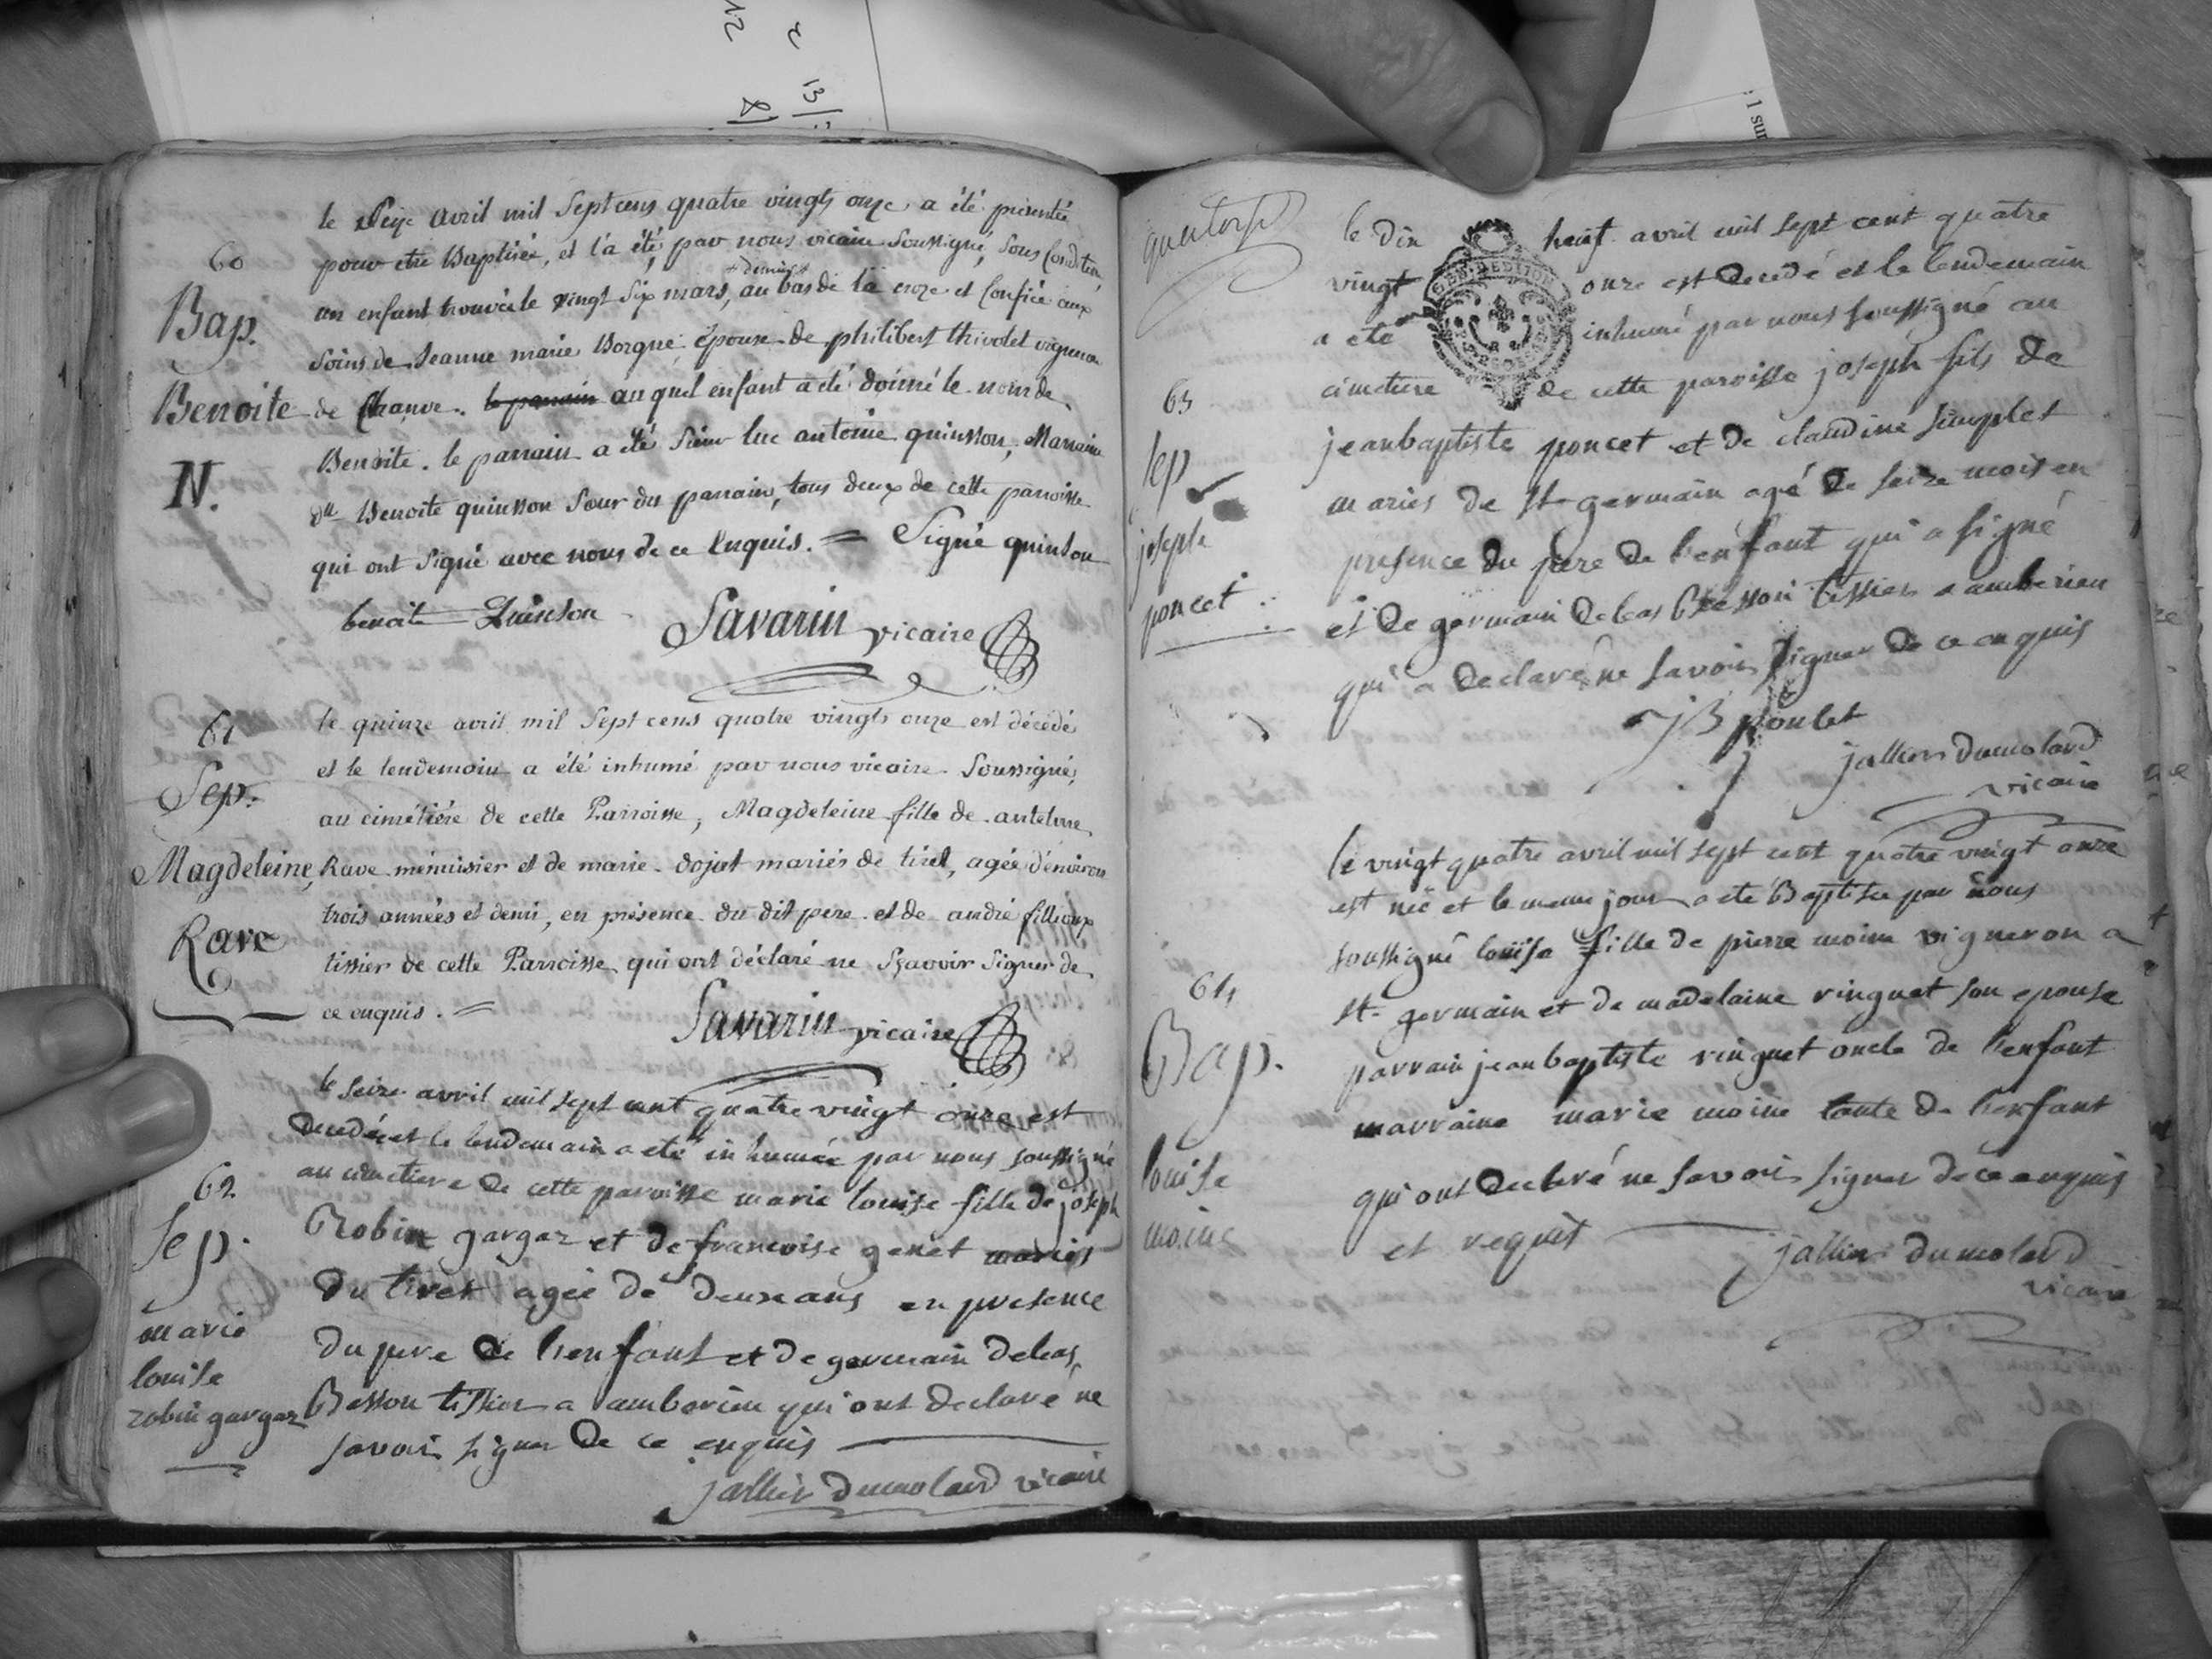 60
Bap.
Benoite
N.
le Seize avril mil Sept cens quatre vingts onze a été présentée
pour etre Baptisée, et l'a été, par nous vicaire Soussigné, Sous Condition,
un enfant trouvée le vingt Six mars, + dernier + au bas de la croze et Confiée aux
Soins de Jeanne marie Borgne épouse de philibert thivolet vigneron
de Chauve. le parrain auquel enfant a été donné le nom de
Benoite. le parrain a été Sieur luc antoine quinsson, Marraine
dlle Benoite quinsson Sœur du parrain, tous deux de cette parroisse
qui ont Signé avec nous de ce Enquis. = Signé quinson
benoite Quinson Savarin vicaire
61
Sep.
Magdeleine
Rave
le quinze avril mil Sept cens quatre vingts onze est décédé
et le lendemain a été inhumé par nous vicaire Soussigné,
au cimétière de cette Parroisse, Magdeleine fille de antelme
Rave ménuisier et de marie dojat mariés de tiret, agée d'environ
trois années et demi, en présence du dit pere et de andré fillioux
tissier de cette Parroisse qui ont déclaré ne Sçavoir Signer de
ce enquis. =
Savarin vicaire
62
Sep.
marie
louise
robin gargaz
le seize avril mil sept cent quatre vingt onze est
decedée et le lendemain a eté inhumée par nous soussigné
au cimetiere de cette paroisse marie louise fille de joseph
Robin gargaz et de francoise genet mariés
du tiret agée de deux ans en presence
du pere de l'enfant et de germain debeas
Besson tissier a amberieu qui ont declaré ne
savoir signer de ce enquis
jallier dumolard vicaire
quatorze
63
sep
joseph
poncet
le dix heuf avril mil sept cent quatre
vingt onze est decedé et le lendemain
a eté inhumé par nous soussigné au
cimetiere de cette paroisse joseph fils de
jean baptiste poncet et de claudine simplet
mariés de st germain agé de seize mois en
presence du pere de l'enfant qui a signé
et de germain debeas Besson tissier a amberieu
qui a declaré ne savoir signer de ce enquis
JB ponset
jallier dumolard
vicaire
64
Bap.
louise
moine
le vingt quatre avril mil sept cent quatre vingt onze
est née et le meme jour a eté Baptisée par nous
soussigné louise fille de pierre moine vigneron a
st germain et de madelaine vinguet son epouse
parrain jean baptiste vinguet oncle de l'enfant
marraine marie moine tante de l'enfant
qui ont declaré ne savoir signer de ce enquis
et requis
jallier dumolard
vicaire